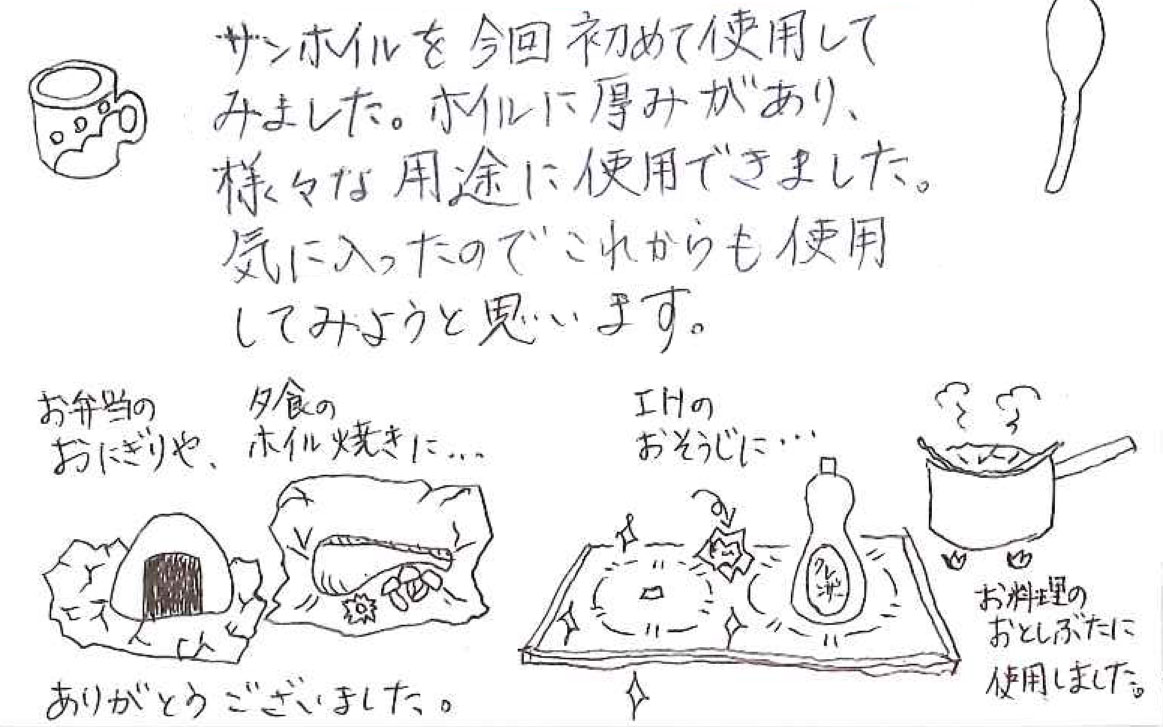 サンホイルを今回初めて使用して
みました。ホイルに厚みがあり、
様々な用途に使用できました。
気に入ったのでこれからも使用
してみようと思います。
お弁当の
おにぎりや、
夕食の
ホイル焼きに...
IHの
おそうじに...
クレンザー
お料理の
おとしぶたに
使用しました。
ありがとうございました。